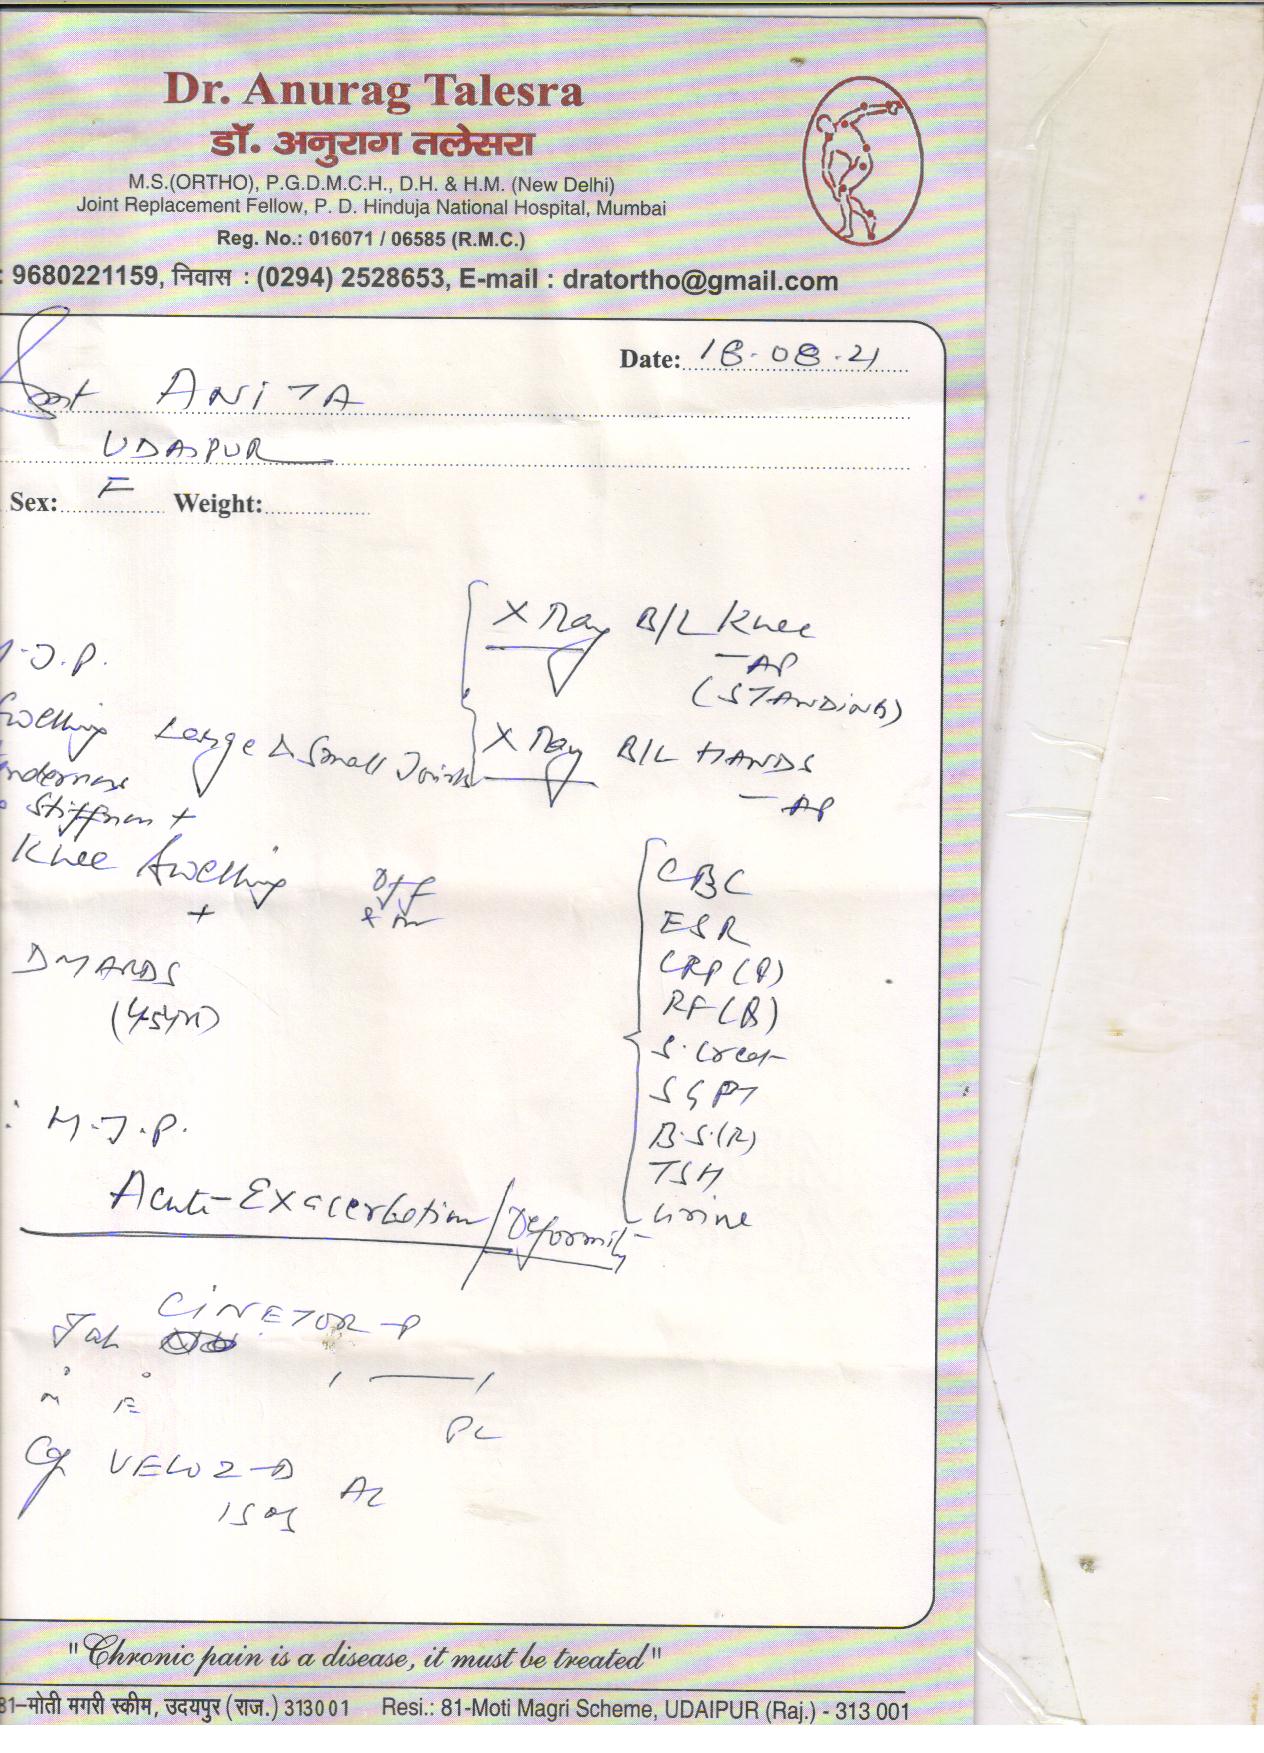 Dr. Anurag Talesra
डॉ. अनुराग तलेसरा
M.S.(ORTHO), P.G.D.M.C.H., D.H. & H.M. (New Delhi)
Joint Replacement Fellow, P. D. Hinduja National Hospital, Mumbai
Reg. No.: 016071 / 06585 (R.M.C.)
: 9680221159, निवास : (0294) 2528653, E-mail : dratortho@gmail.com
Date: 18-08-21
Smt ANITA
UDAIPUR
Sex: F Weight:
X Ray B/L Knee
- AP
(STANDING)
.J.P.
Swelling Large & Small Joints
X Ray B/L HANDS
- AP
Stiffness +
Knee Swelling
+
CBC
ESR
CRP (Q)
DMARDS
RF (Q)
S. Creat
SGPT
B.S.(R)
: M.J.P.
TSH
Urine
Acute Exacerbation / Deformity
Tab CINETOR-P
M E
PC
Cap VELOZ-D
AC
"Chronic pain is a disease, it must be treated"
81–मोती मगरी स्कीम, उदयपुर (राज.) 313001 Resi.: 81-Moti Magri Scheme, UDAIPUR (Raj.) - 313 001